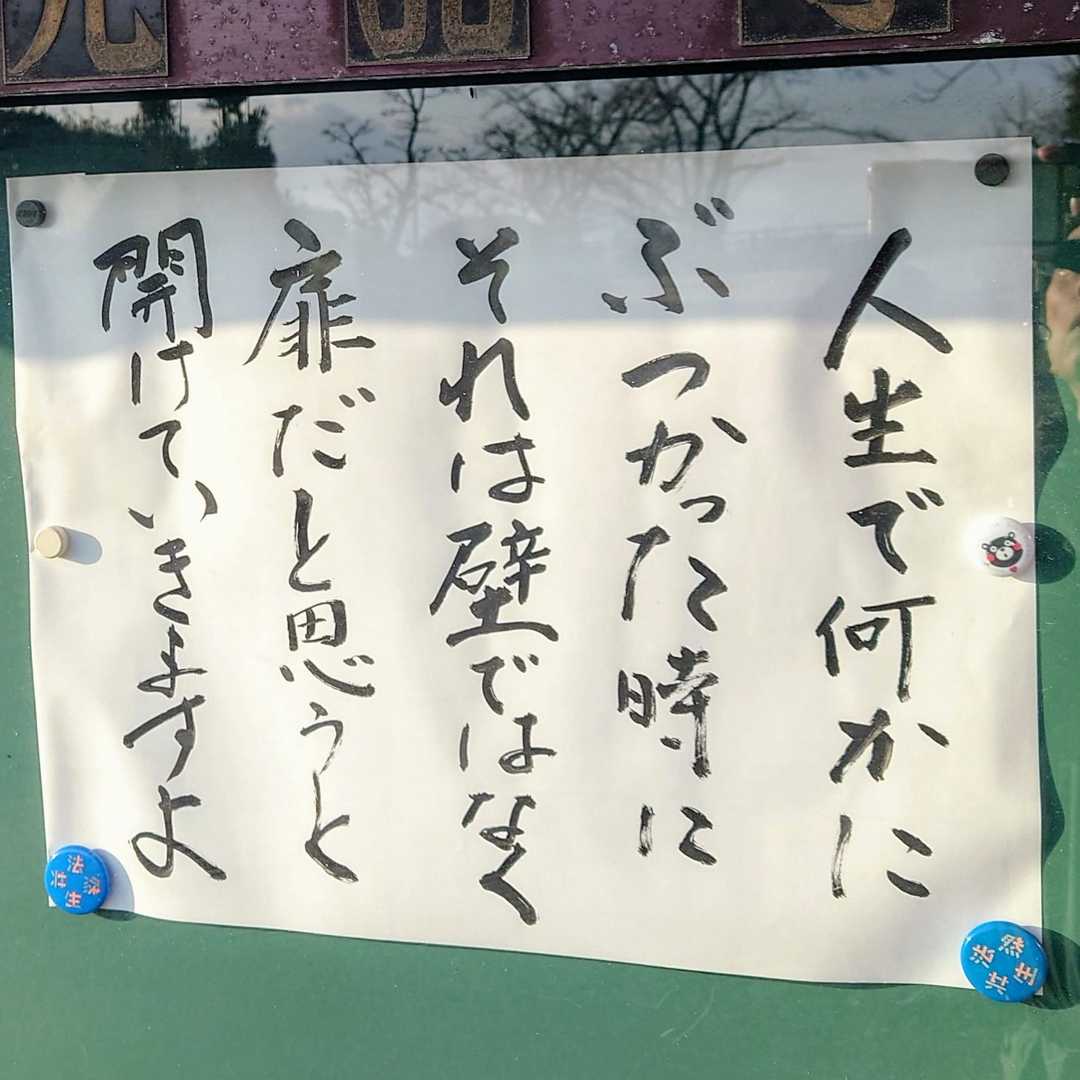 人生で何かに
ぶつかった時に
それは壁ではなく
扉だと思うと
開けていきますよ
法然共生
法然共生